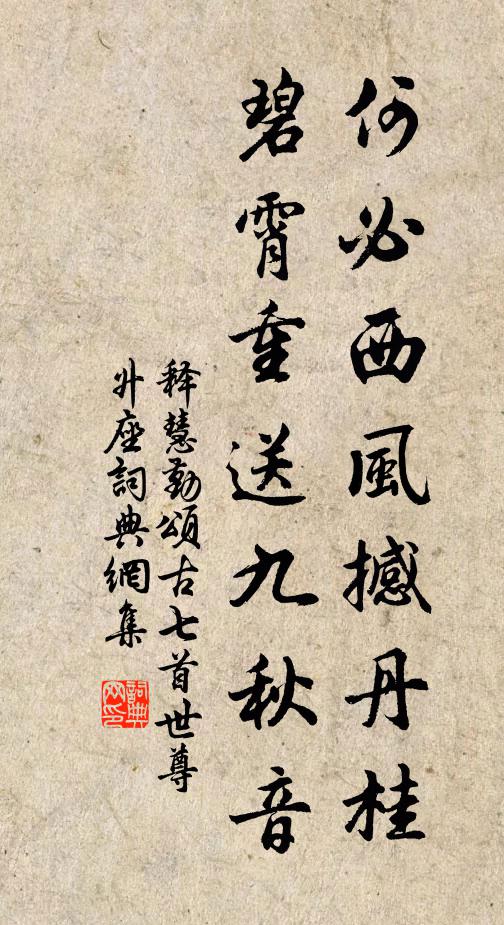 何必西風撼丹桂
碧霄重送九秋音
释慧勤頌古七首世尊
升座詞典網集
詞典網印